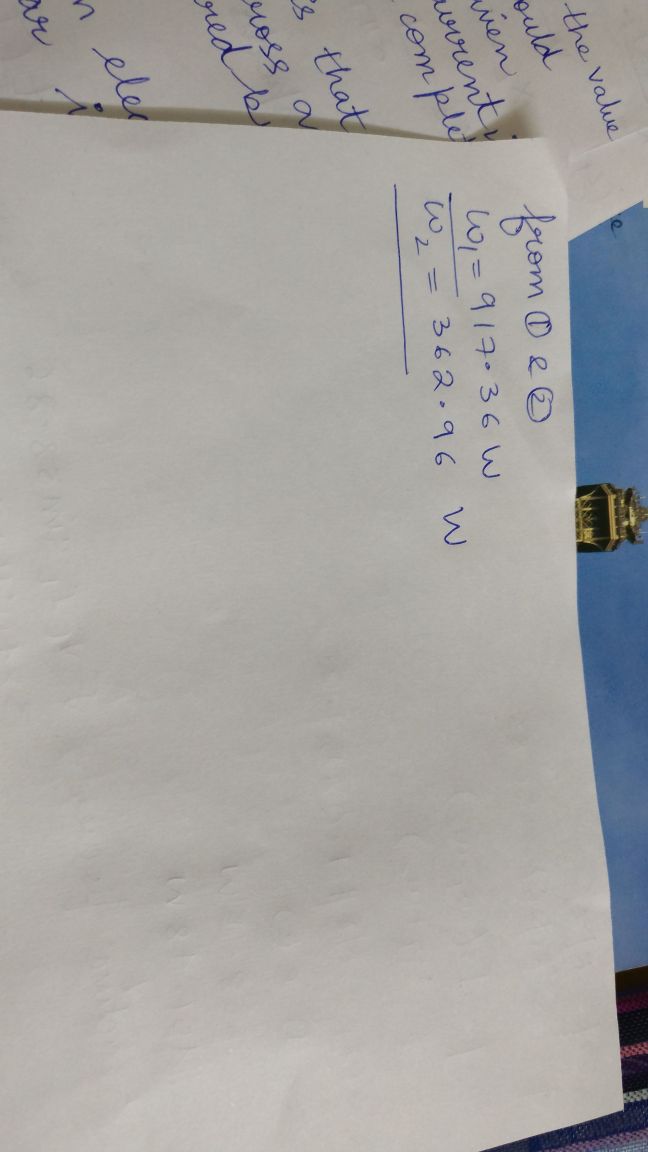 the value
ould
urrent
comple
s that
ross a
red b
n elec
ar i
from ① & ②
W₁ = 917.36 W
W₂ = 362.96 W